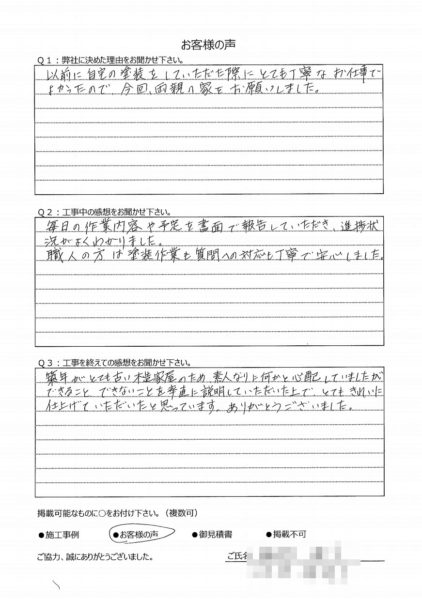 お客様の声
Q1：弊社に決めた理由をお聞かせ下さい。
以前に自宅の塗装をしていただた際にとても丁寧なお仕事で
よかったので、今回、両親の家をお願いしました。
Q2：工事中の感想をお聞かせ下さい。
毎日の作業内容や予定を書面で報告していただき、進捗状
況がよくわかりました。
職人の方は塗装作業も質問への対応も丁寧で安心しました。
Q3：工事を終えての感想をお聞かせ下さい。
築年がとても古い木造家屋のため、素人なりに何かと心配していましたが
できること、できないことを率直に説明していただいた上で、とてもきれいに
仕上げていただいたと思っています。ありがとうございました。
掲載可能なものに○をお付け下さい。（複数可）
●施工事例 ●お客様の声 ●御見積書 ●掲載不可
ご協力、誠にありがとうございました。 ご氏名